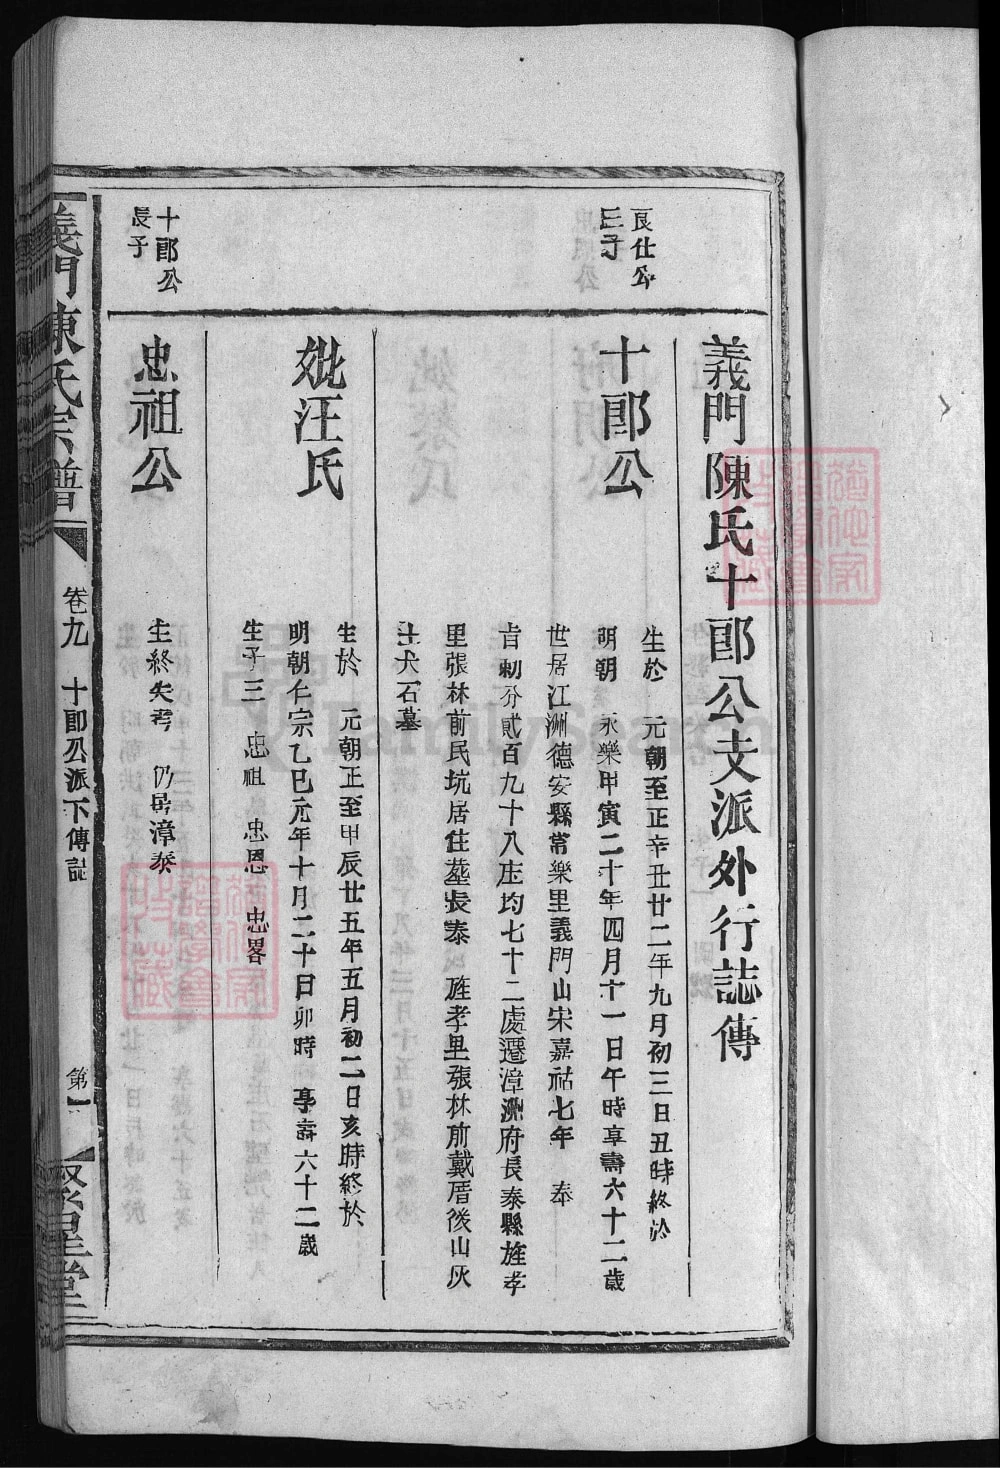 義門陳氏十郎公支派外行誌傳
良仕公
三子
十郎公
生於 元朝至正辛丑廿二年九月初三日丑時終於
明朝 永樂甲寅二十年四月十一日午時享壽六十二歲
世居江洲德安縣常樂里義門山宋嘉祜七年 奉
旨勅分貳百九十八庄均七十二處遷漳洲府長泰縣旌孝
里張林前民坑居住塟長泰 旌孝里張林前戴厝後山灰
土大石墓
妣汪氏
生於 元朝正至甲辰廿五年五月初二日亥時終於
明朝仁宗乙巳元年十月二十日卯時 享壽六十二歲
生子三 忠祖 忠恩 忠畧
十郎公
長子
忠祖公
生終失考 仍居漳泰
義門陳氏宗譜
卷九 十郎公派下傳誌
第一
聚星堂
FamilySearch